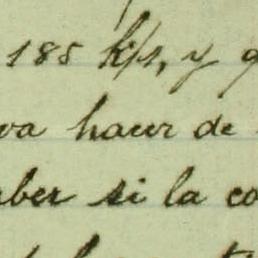 185 k/s, y q
va hacer de
aber si la co